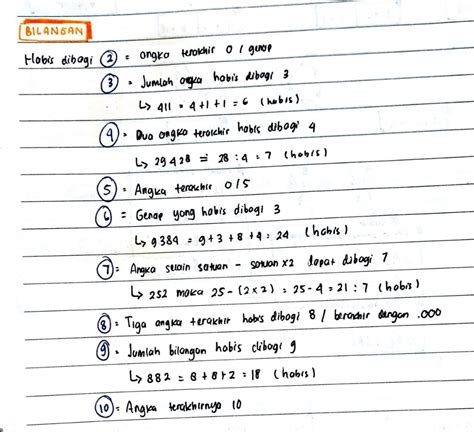 BILANGAN
Habis dibagi 2 = angka terakhir 0 / genap
3 = Jumlah angka habis dibagi 3
↳ 411 = 4+1+1 = 6 (habis)
4 = Dua angka terakhir habis dibagi 4
↳ 29428 = 28 : 4 = 7 (habis)
5 = Angka terakhir 0/5
6 = Genap yang habis dibagi 3
↳ 9384 = 9+3+8+4 = 24 (habis)
7 = Angka selain satuan - satuan x2 dapat dibagi 7
↳ 252 maka 25 - (2x2) = 25 - 4 = 21 : 7 (habis)
8 = Tiga angka terakhir habis dibagi 8 / berakhir dengan .000
9 = Jumlah bilangan habis dibagi 9
↳ 882 = 8+8+2 = 18 (habis)
10 = Angka terakhirnya 10